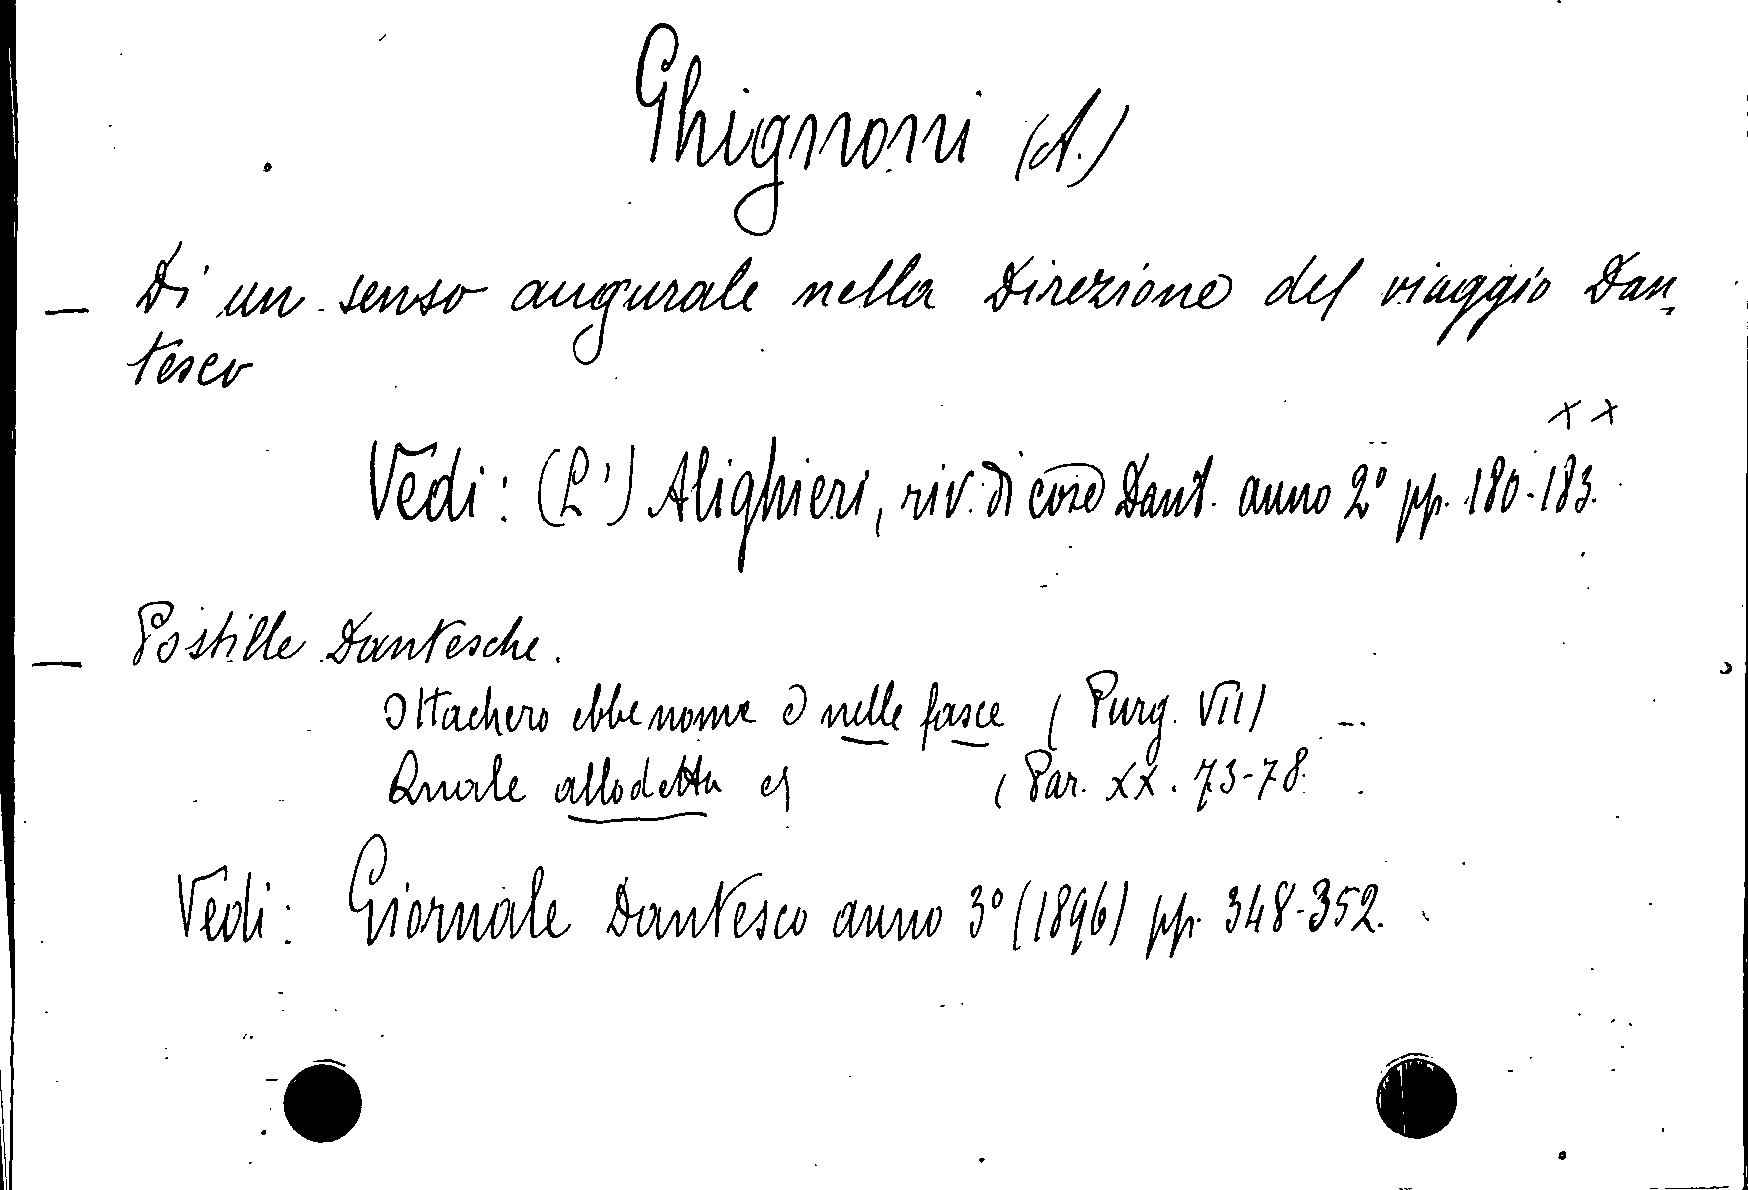 Ghignoni (A.)
— Di un senso augurale nella Direzione del viaggio Dan-
tesco
x x
Vedi: (L') Alighieri, riv. di cose Dant. anno 2° pp. 180-183.
— Postille Dantesche.
Ottachero ebbe nome e nelle fasce ( Purg. VII)
Quale allodetta ( Par. XX. 73-78.
Vedi: Giornale Dantesco anno 3° (1896) pp. 348-352.